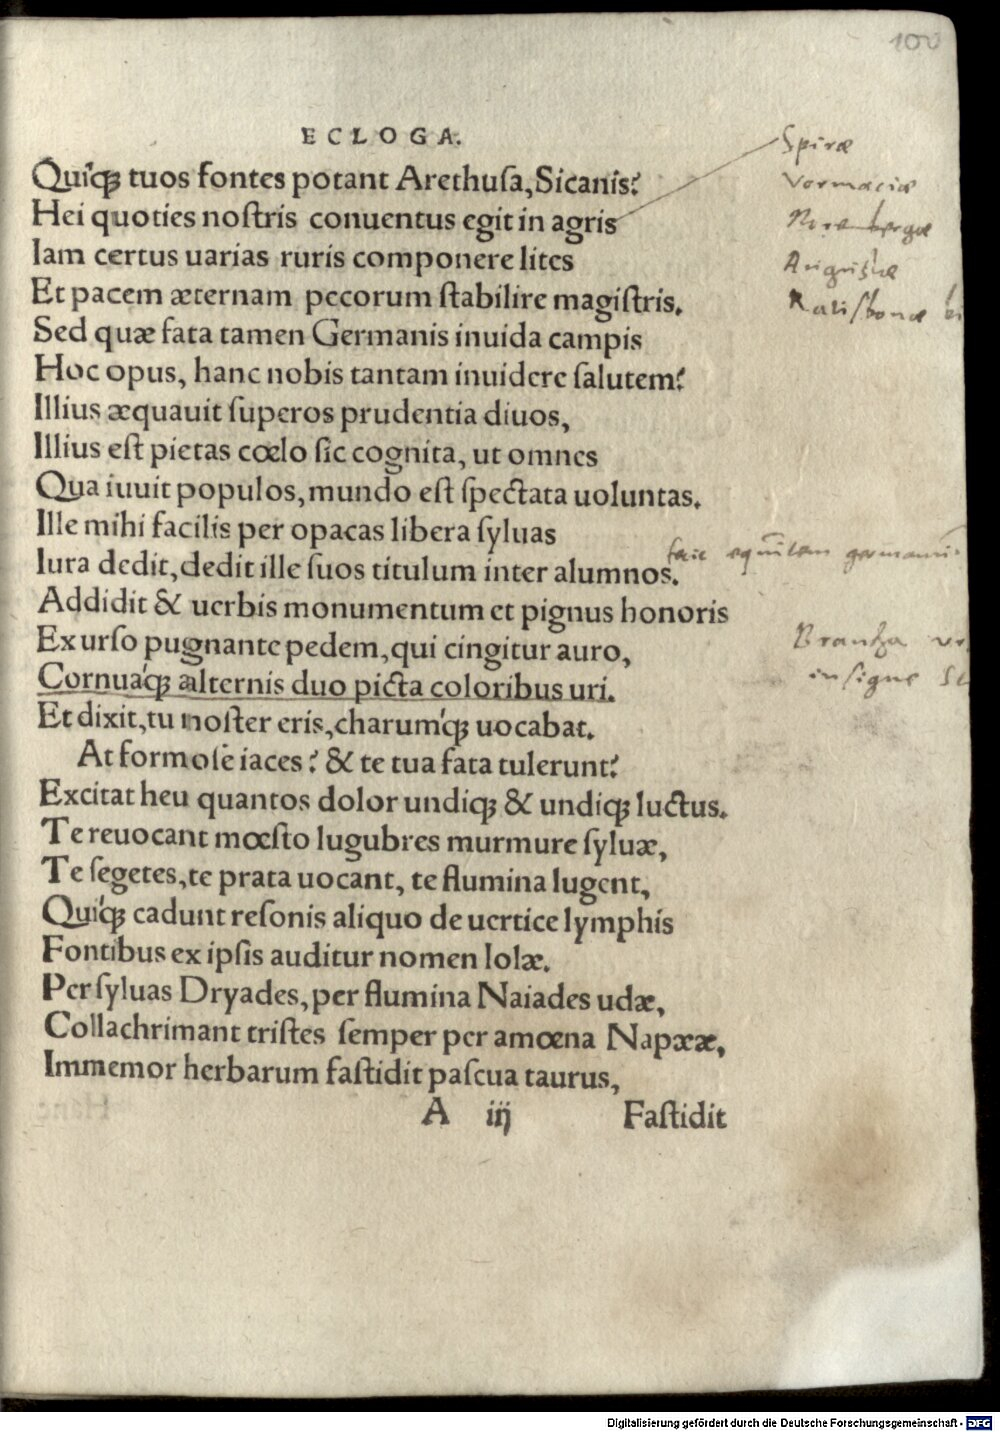 100
ECLOGA.
Quiq́ꝫ tuos fontes potant Arethuſa, Sicanis?
Hei quoties noſtris conuentus egit in agris
Iam certus uarias ruris componere lites
Et pacem æternam pecorum ſtabilire magiſtris.
Sed quæ fata tamen Germanis inuida campis
Hoc opus, hanc nobis tantam inuidere ſalutem?
Illius æquauit ſuperos prudentia diuos,
Illius eſt pietas cœlo ſic cognita, ut omnes
Qua iuuit populos, mundo eſt ſpectata uoluntas.
Ille mihi facilis per opacas libera ſyluas
Iura dedit, dedit ille ſuos titulum inter alumnos.
Addidit & uerbis monumentum et pignus honoris
Ex urſo pugnante pedem, qui cingitur auro,
Cornuaq́ꝫ alternis duo picta coloribus uri.
Et dixit, tu noſter eris, charumq́ꝫ uocabat.
At formoſe iaces? & te tua fata tulerunt?
Excitat heu quantos dolor undiqꝫ & undiqꝫ luctus.
Te reuocant mœſto lugubres murmure ſyluæ,
Te ſegetes, te prata uocant, te flumina lugent,
Quiq́ꝫ cadunt reſonis aliquo de uertice lymphis
Fontibus ex ipſis auditur nomen Iolæ.
Per ſyluas Dryades, per flumina Naiades udæ,
Collachrimant triſtes ſemper per amœna Napææ,
Immemor herbarum faſtidit paſcua taurus,
A iij Faſtidit
Spiræ
Vormaciæ
Norembergæ
Auguſtæ
Ratiſbonæ
equitem
inſigne
Digitalisierung gefördert durch die Deutsche Forschungsgemeinschaft - DFG